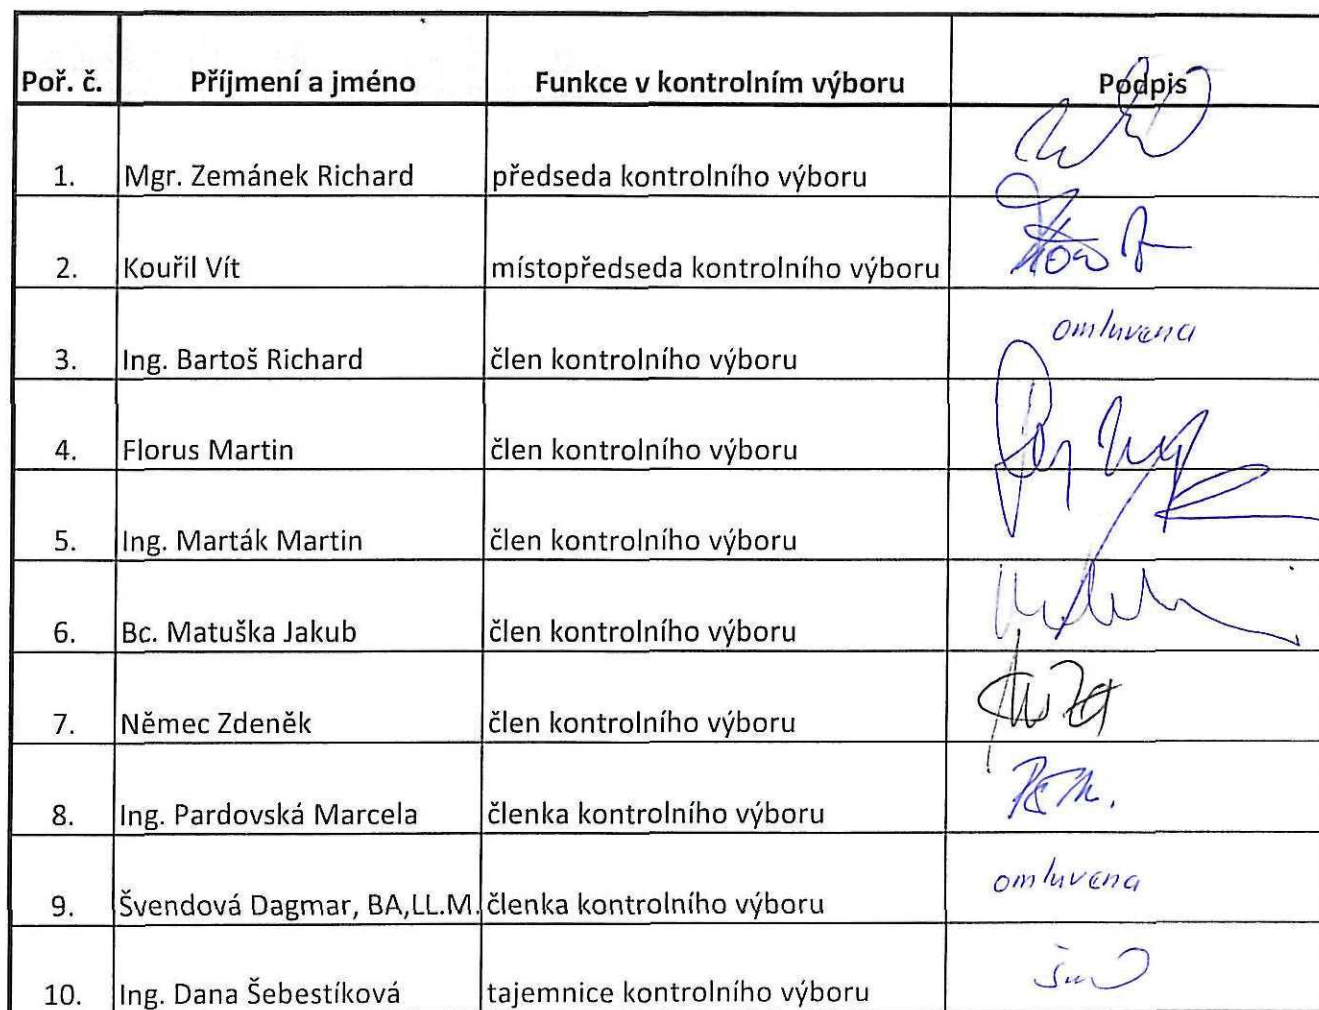 Poř. č. Příjmení a jméno Funkce v kontrolním výboru Podpis
1. Mgr. Zemánek Richard předseda kontrolního výboru
2. Kouřil Vít místopředseda kontrolního výboru
3. Ing. Bartoš Richard člen kontrolního výboru omluvena
4. Florus Martin člen kontrolního výboru
5. Ing. Marták Martin člen kontrolního výboru
6. Bc. Matuška Jakub člen kontrolního výboru
7. Němec Zdeněk člen kontrolního výboru
8. Ing. Pardovská Marcela členka kontrolního výboru
9. Švendová Dagmar, BA,LL.M. členka kontrolního výboru omluvena
10. Ing. Dana Šebestíková tajemnice kontrolního výboru